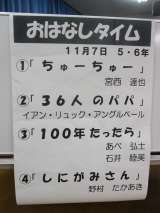 おはなしタイム
11月7日 5・6年
①「ちゅーちゅー」
宮西 達也
②「36人のパパ」
イアン・リュック・アングルベール
③「100年たったら」
あべ 弘士
石井 睦美
④「しにがみさん」
野村 たかあき